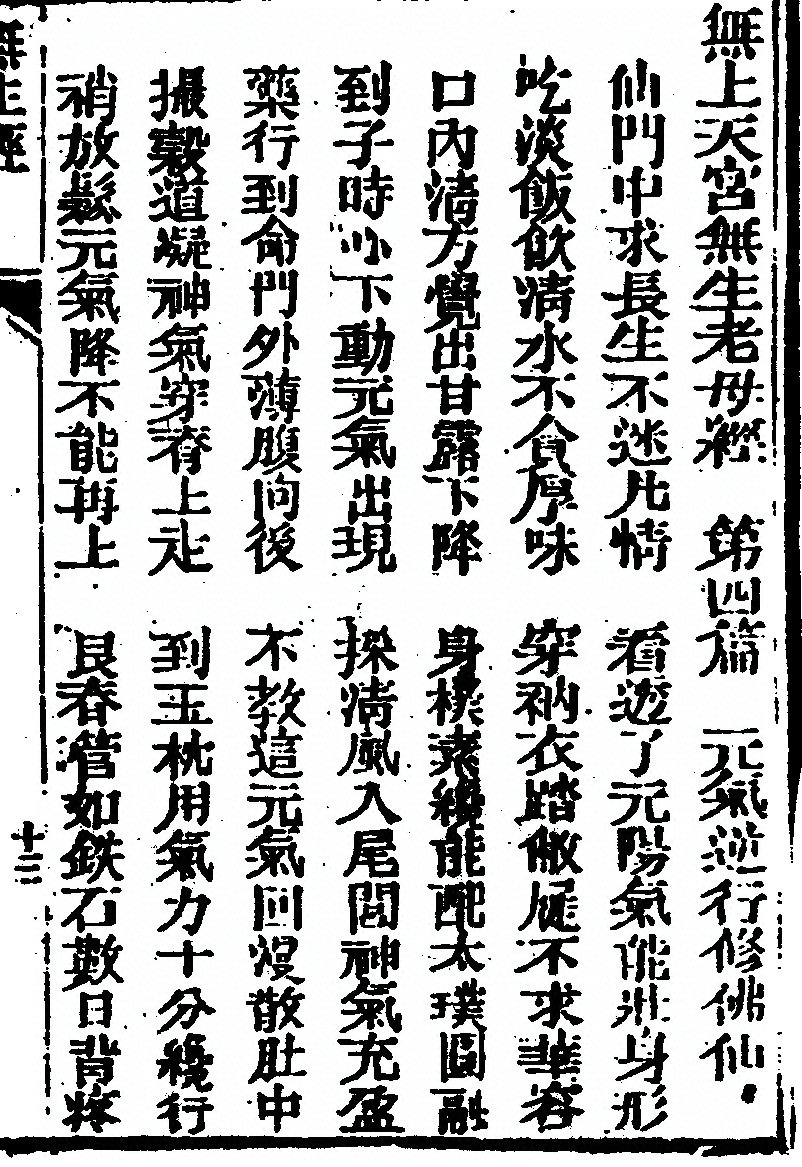 無上天宮無生老母經　第四篇　元氣逆行修佛仙
仙門中求長生不迷凡情　看透了元陽氣能壯身形
吃淡飯飲清水不貪厚味　穿衲衣踏敝屣不求華容
口內清方覺出甘露下降　身樸素纔能配太璞圓融
到子時心下動元氣出現　採清風入尾閭神氣充盈
藥行到命門外薄腹向後　不教這元氣回熳散肚中
撮穀道凝神氣穿脊上走　到玉枕用氣力十分纔行
稍放鬆元氣降不能再上　艮脊管如鉄石數日背疼
無生經
十三